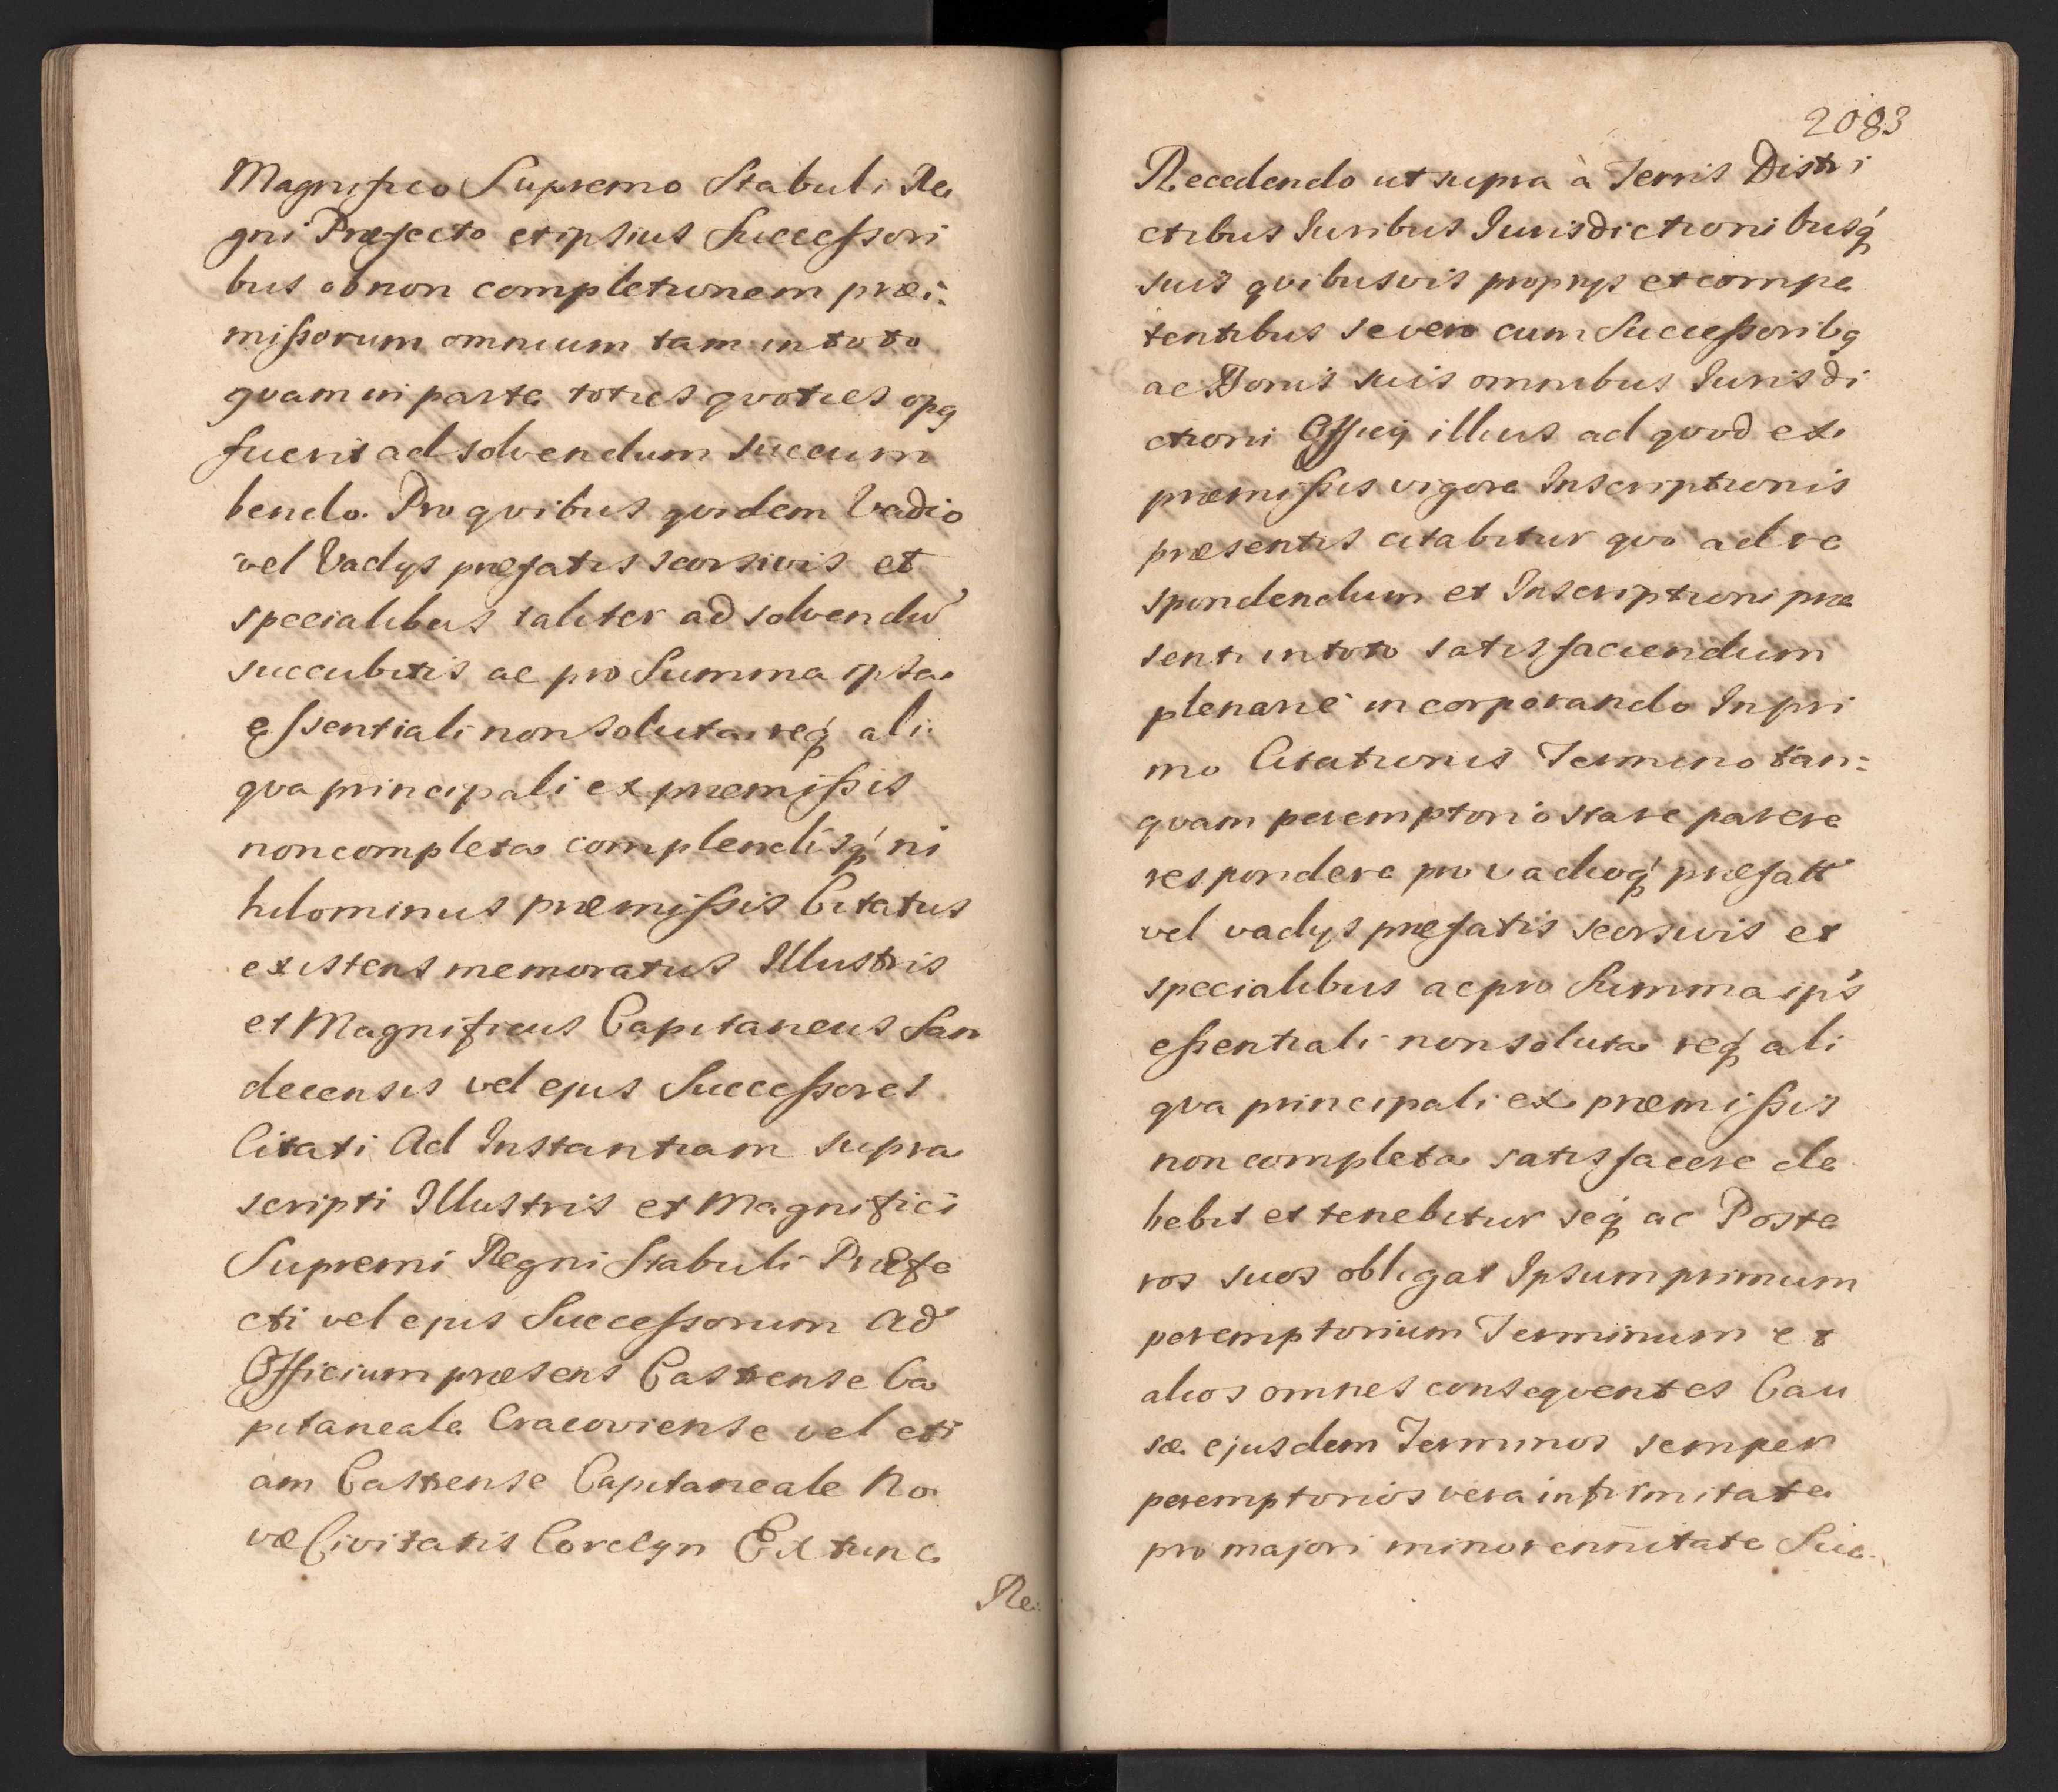 Magnifico Supremo Stabuli Re
gni Præfecto et ipsius Successori
bus ob non completionem præ:
missorum omnium tam in toto
quam in parte toties qvoties opq
fuerit ad solvendum succum
bendo. Pro qvibus qvidem Vadio
vel Vadijs præfatis seorsivis et
specialibus taliter ad solvendũ
succubitis ac pro Summa ipsa
essentiali non soluta req́ ali:
qva principali ex præmissis
non completa complendisq́ ni
hilominus præmissis Citatus
existens memoratus Illustris
et Magnificus Capitaneus San
decensis vel ejus Successores
Citati Ad Instantiam supra
scripti Illustris et Magnifici
Supremi Regni Stabuli Præfe
cti vel ejus Successorum Ad
Officium præsens Castrense Ca
pitaneale Cracoviense vel eti
am Castrense Capitaneale No
væ Civitatis Corclyn Ex tunc
Re:
2083
Recedendo ut supra à Terris Distri
ctibus Juribus Jurisdictionibusq́
suis qvibusvis proprijs et compe
tentibus se vero cum Successoribq
ac Bonis suis omnibus Jurisdi
ctioni Officij illius ad qvod ex
præmissis vigore Inscriptionis
præsentis citabitur qvo ad re
spondendum et Inscriptioni præ
senti in toto satisfaciendum
plenarie incorporando In pri
mo Citationis Termino tan:
qvam peremptorio stare parere
respondere pro vadioq́ præfatt
vel vadijs præfatis seorsivis et
specialibus ac pro Summa ips̃
essentiali non soluta req́ ali
qva principali ex præmissis
non completa satisfacere de
bebit et tenebitur seq́ ac Poste
ros suos obligat Ipsum primum
peremptorium Terminum et
alios omnes conseqventes Cau
sæ ejusdem Terminos semper
peremptorios vera infirmitate
pro majori minorennitate Suc.